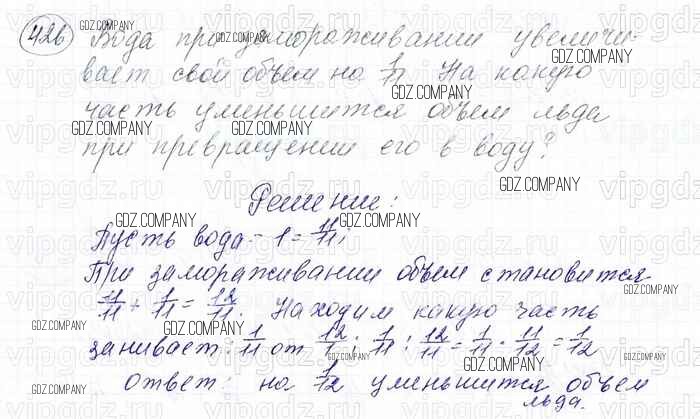 426 Вода при замораживании увеличи-
вает свой объем на 1/11. На какую
часть уменьшится объем льда
при превращении его в воду?
Решение:
Пусть вода - 1 = 11/11,
При замораживании объем становится
11/11 + 1/11 = 12/11. Находим какую часть
занивает: 1/11 от 12/11; 1/11 : 12/11 = 1/11 · 11/12 = 1/12
ответ: на 1/12 уменьшится объем
льда.
GDZ.COMPANY
vipgdz.ru